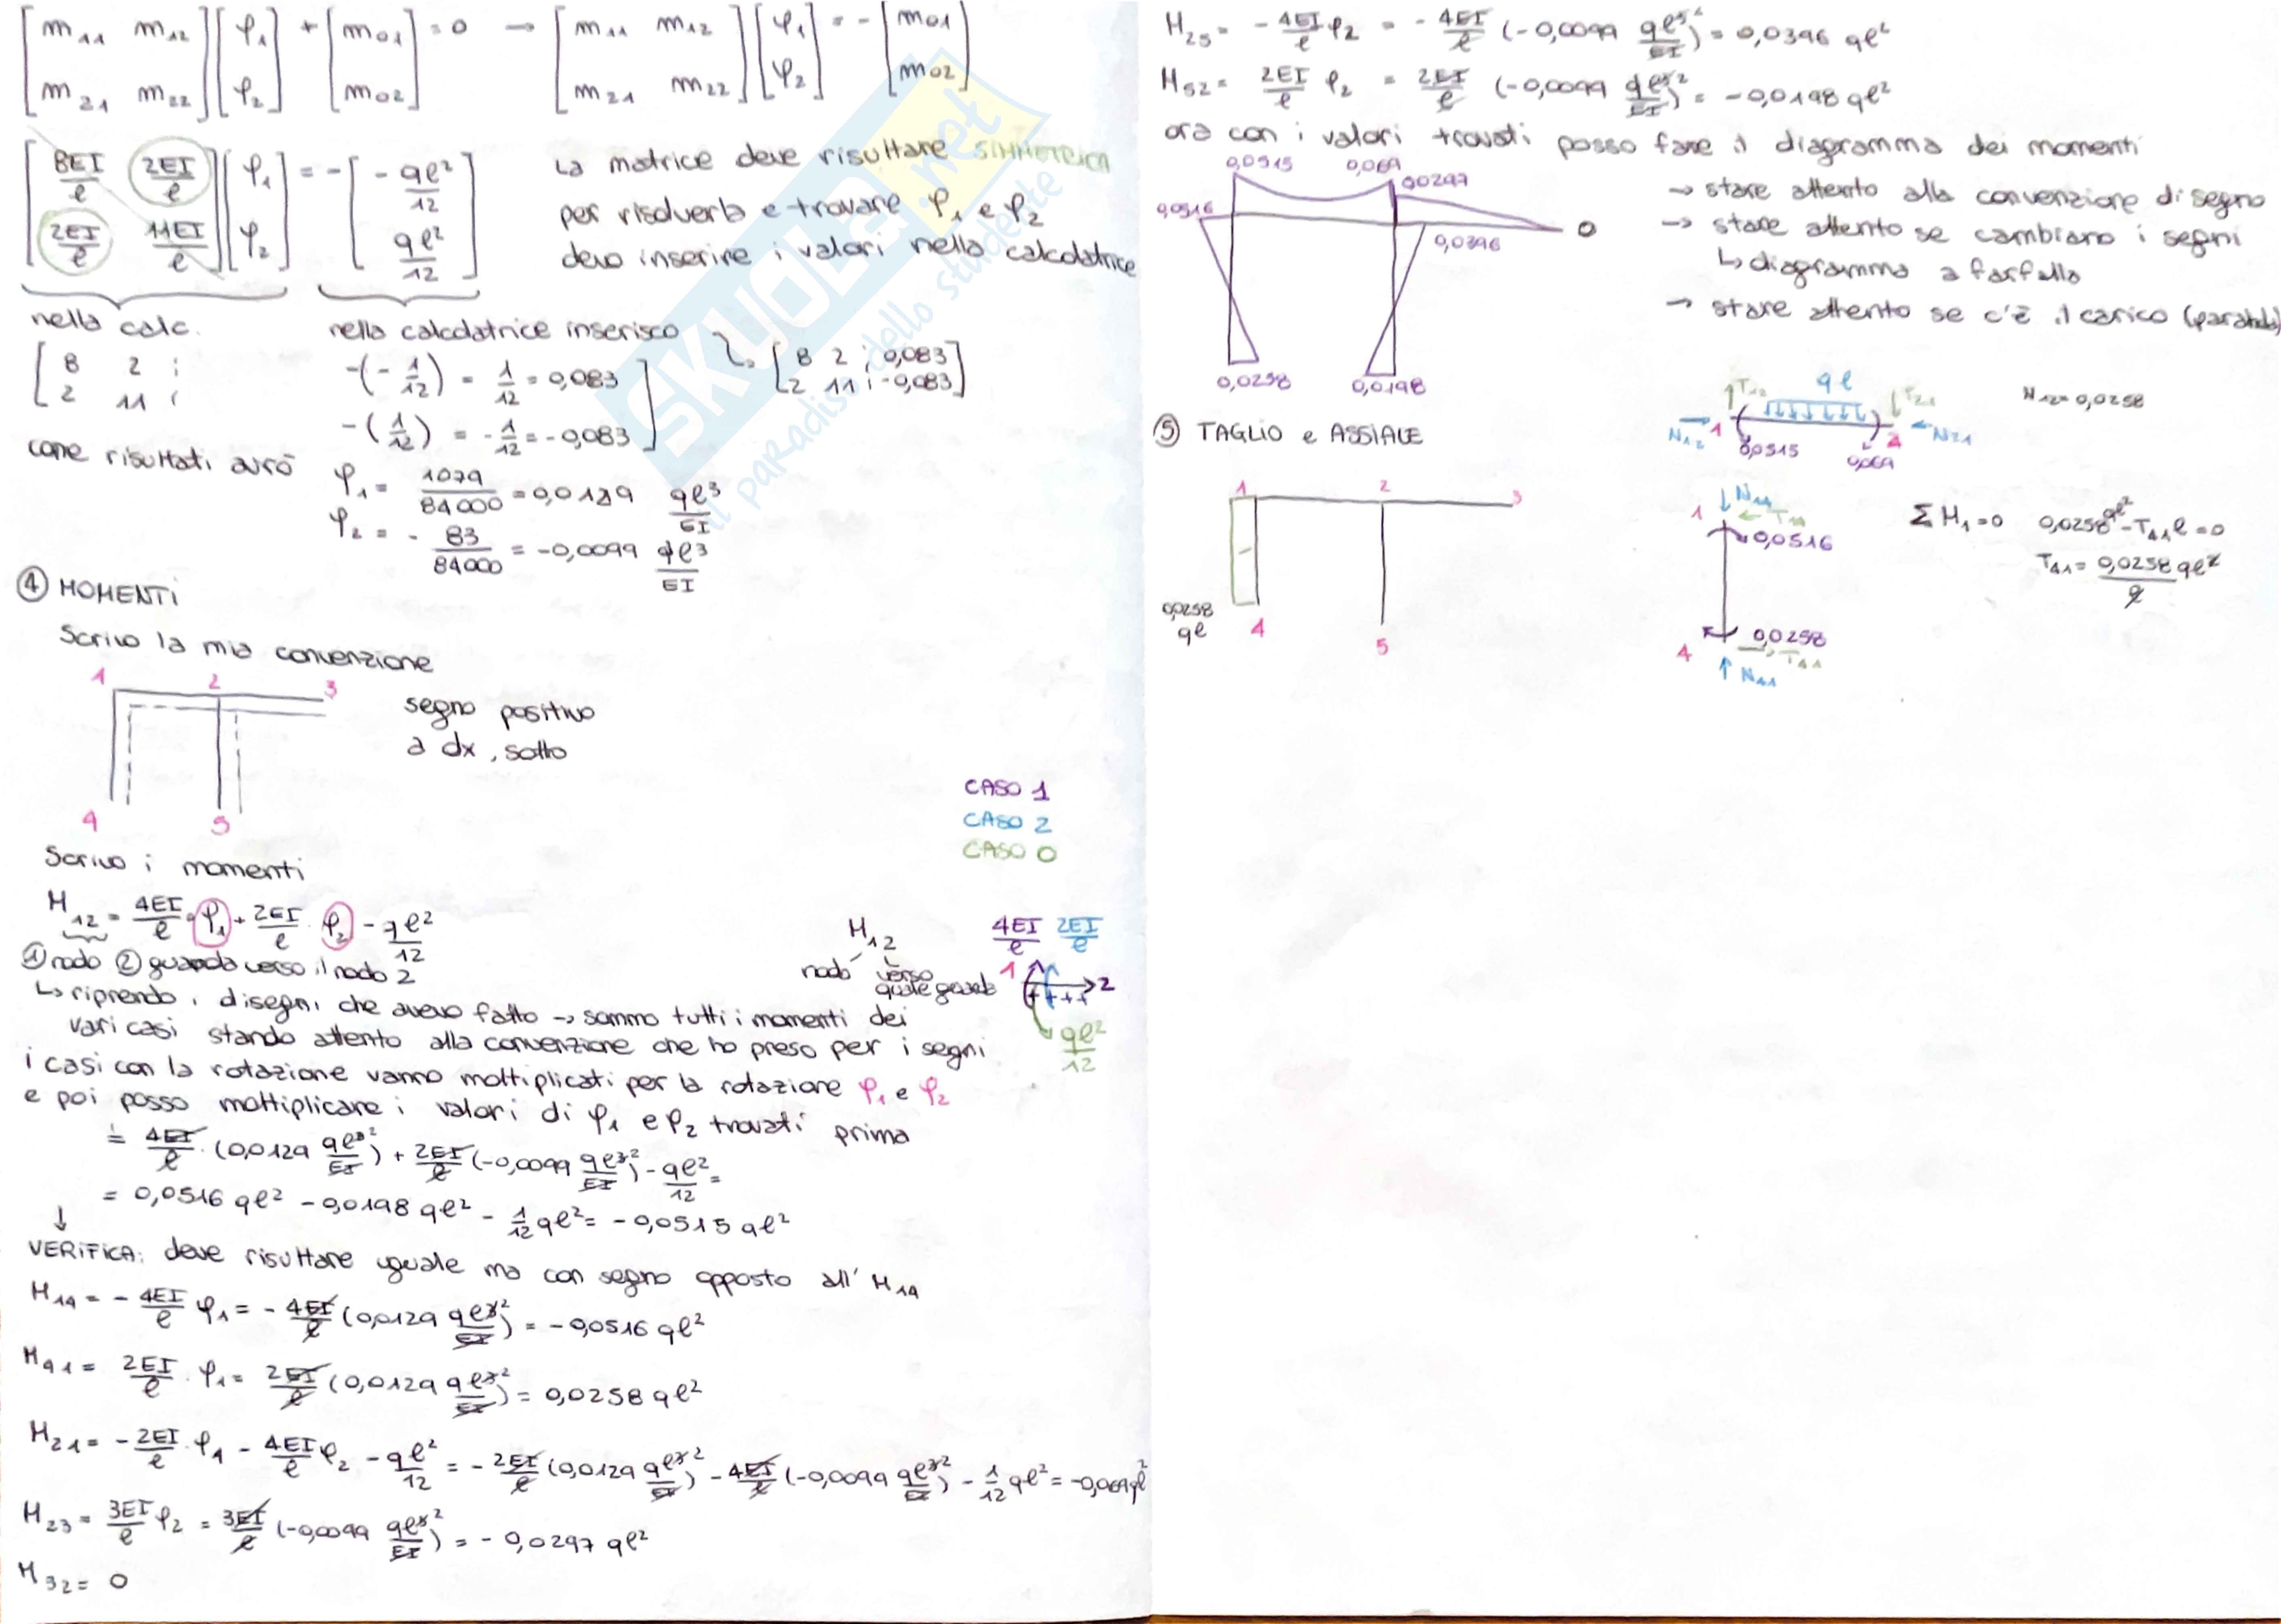 [m11 m12; m21 m22] [φ1; φ2] + [m01; m02] = 0 → [m11 m12; m21 m22] [φ1; φ2] = - [m01; m02]
[8EI/ℓ 2EI/ℓ; 2EI/ℓ 11EI/ℓ] [φ1; φ2] = - [-qℓ²/12; qℓ²/12]
La matrice deve risultare SIMMETRICA
per risolverla e trovare φ1 e φ2
devo inserire i valori nella calcolatrice
nella calc.
[8 2 ; 2 11
nella calcolatrice inserisco
-(-1/12) = 1/12 = 0,083
-(1/12) = -1/12 = -0,083
[8 2 ; 0,083
2 11 ; -0,083]
come risultati avrò
φ1 = 1079/84000 = 0,0129 qℓ³/EI
φ2 = - 83/84000 = -0,0099 qℓ³/EI
④ MOMENTI
Scrivo la mia convenzione
1 2 3
4 5
segno positivo
a dx, sotto
CASO 1
CASO 2
CASO 0
Scrivo i momenti
M12 = 4EI/ℓ · φ1 + 2EI/ℓ · φ2 - qℓ²/12
① nodo ② guarda verso il nodo 2
M12
nodo verso quale guarda
4EI/ℓ 2EI/ℓ
1 2
qℓ²/12
↳ riprendo i disegni che avevo fatto → sommo tutti i momenti dei
vari casi stando attento alla convenzione che ho preso per i segni
i casi con la rotazione vanno moltiplicati per la rotazione φ1 e φ2
e poi posso moltiplicare i valori di φ1 e φ2 trovati prima
= 4EI/ℓ · (0,0129 qℓ³²/EI) + 2EI/ℓ (-0,0099 qℓ³²/EI) - qℓ²/12 =
= 0,0516 qℓ² - 0,0198 qℓ² - 1/12 qℓ² = -0,0515 qℓ²
↓
VERIFICA: deve risultare uguale ma con segno opposto all' M14
M14 = - 4EI/ℓ φ1 = - 4EI/ℓ (0,0129 qℓ³²/EI) = -0,0516 qℓ²
M41 = 2EI/ℓ · φ1 = 2EI/ℓ (0,0129 qℓ³²/EI) = 0,0258 qℓ²
M21 = - 2EI/ℓ · φ1 - 4EI/ℓ φ2 - qℓ²/12 = - 2EI/ℓ (0,0129 qℓ³²/EI) - 4EI/ℓ (-0,0099 qℓ³²/EI) - 1/12 qℓ² = -0,069 qℓ²
M23 = 3EI/ℓ φ2 = 3EI/ℓ (-0,0099 qℓ³²/EI) = -0,0297 qℓ²
M32 = 0
M25 = - 4EI/ℓ φ2 = - 4EI/ℓ (-0,0099 qℓ³²/EI) = 0,0396 qℓ²
M52 = 2EI/ℓ φ2 = 2EI/ℓ (-0,0099 qℓ³²/EI) = -0,0198 qℓ²
ora con i valori trovati posso fare il diagramma dei momenti
0,0515 0,069 0,0297
0,0516 0,0396 0
0,0258 0,0198
→ stare attento alla convenzione di segno
→ stare attento se cambiano i segni
↳ diagramma a farfalla
→ stare attento se c'è il carico (parabola)
⑤ TAGLIO e ASSIALE
T12 qℓ T21
N12 1 2 N21
0,0515 0,069
N12 = 0,0258
1 2 3
0,0258
qℓ
4 5
1 N14
T14
0,0516
4 0,0258
T41
N41
ΣM1 = 0 0,0258 qℓ² - T41 ℓ = 0
T41 = 0,0258 qℓ²/ℓ
SKUOLA.net
il paradiso dello studente